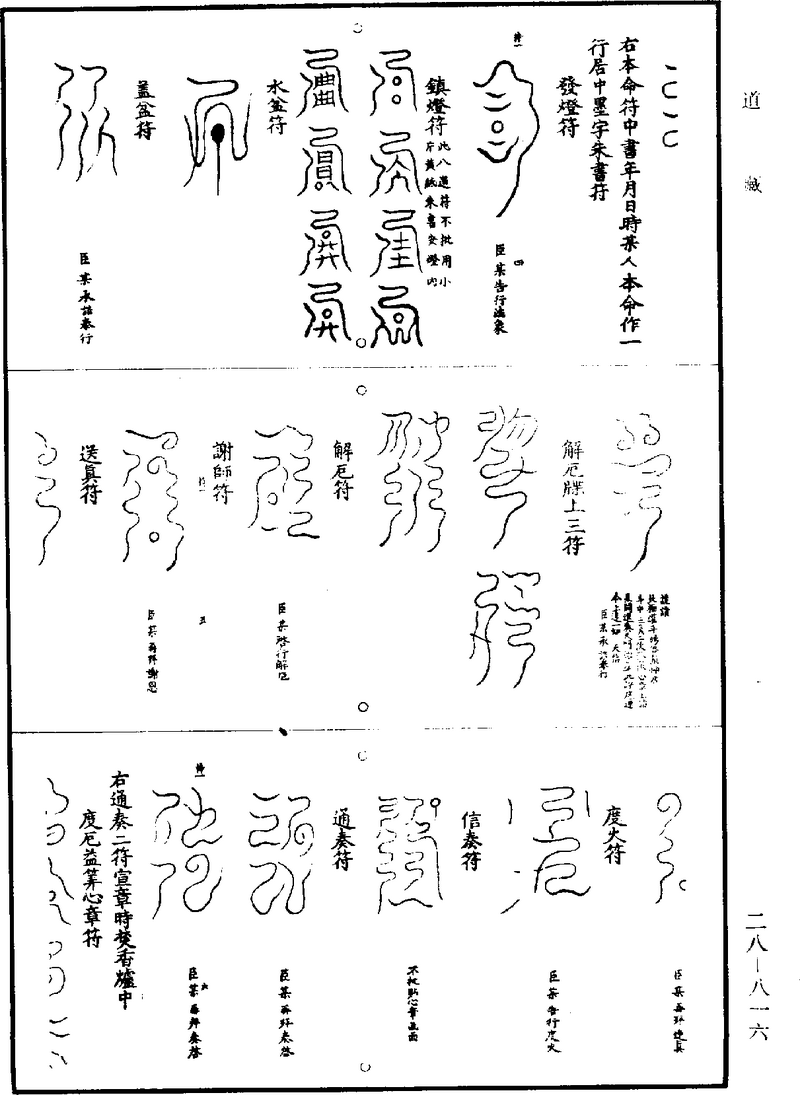 道藏
右本命符中書年月日時某人本命作一
行居中墨字朱書符
發燈符
符一
四
臣某告行滅象
鎮燈符
此八道符不批用小
片黃紙朱書安燈內
水盆符
蓋盆符
臣某承誥奉行
解厄牒上三符
解厄符
臣某啓行解厄
謝師符
符一
五
臣某再拜謝恩
送真符
臣某再拜送真
度火符
臣某告行度火
信奏符
不批貼心章函面
通奏符
臣某再拜奏啓
符一
六
臣某再拜奏啓
右通奏二符宣章時焚香爐中
度厄益筭心章符
二八—八一六